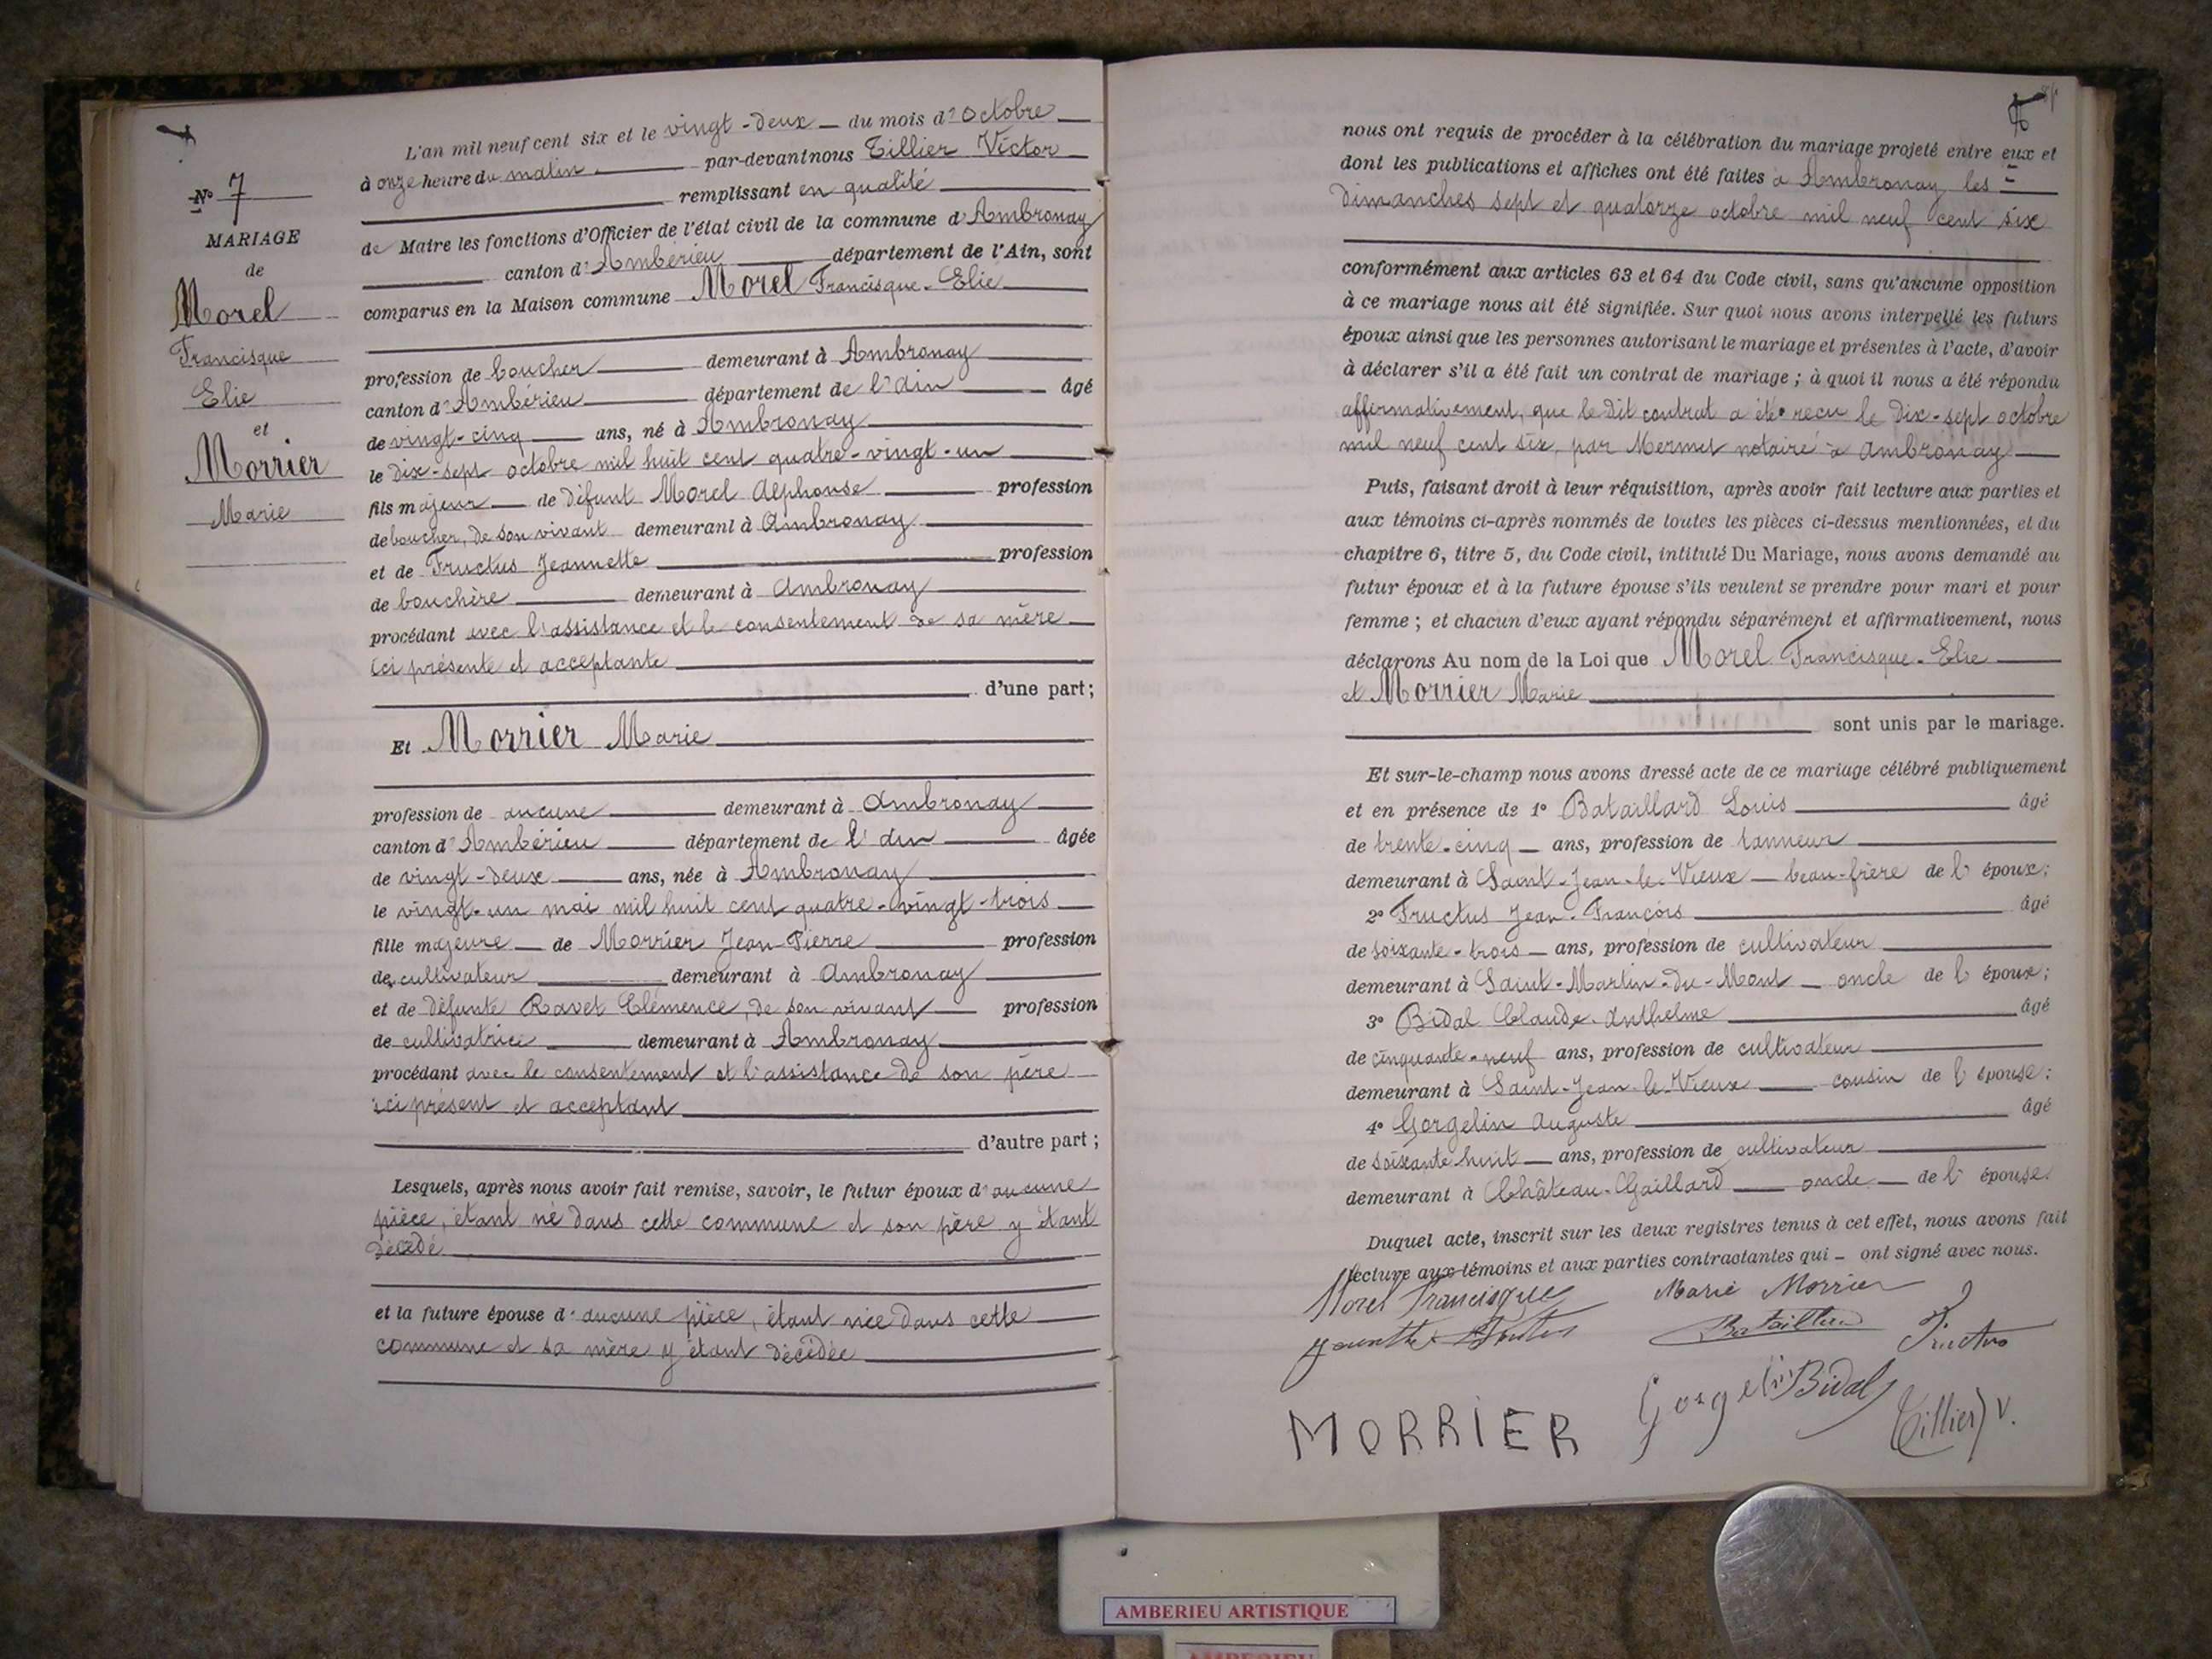 N° 7
MARIAGE
de
Morel
Francisque
Elie
et
Morrier
Marie
L'an mil neuf cent six et le vingt-deux du mois d'Octobre
à onze heure du matin par-devant nous Tillier Victor
remplissant en qualité
de Maire les fonctions d'Officier de l'état civil de la commune d'Ambronay
canton d'Ambérieu département de l'Ain, sont
comparus en la Maison commune Morel Francisque-Elie
profession de boucher demeurant à Ambronay
canton d'Ambérieu département de l'Ain âgé
de vingt-cinq ans, né à Ambronay
le dix-sept octobre mil huit cent quatre-vingt-un
fils majeur de défunt Morel Alphonse profession
de boucher, de son vivant demeurant à Ambronay
et de Fructus Jeannette profession
de bouchère demeurant à Ambronay
procédant avec l'assistance et le consentement de sa mère
ici présente et acceptante
d'une part;
Et Morrier Marie
profession de aucune demeurant à Ambronay
canton d'Ambérieu département de l'Ain âgée
de vingt-deux ans, née à Ambronay
le vingt-un mai mil huit cent quatre-vingt-trois
fille majeure de Morrier Jean-Pierre profession
de cultivateur demeurant à Ambronay
et de défunte Ravet Clémence, de son vivant profession
de cultivatrice demeurant à Ambronay
procédant avec le consentement et l'assistance de son père
ici présent et acceptant
d'autre part;
Lesquels, après nous avoir fait remise, savoir, le futur époux d'aucune
pièce, étant né dans cette commune et son père y étant
décédé
et la future épouse d'aucune pièce, étant née dans cette
commune et sa mère y étant décédée
nous ont requis de procéder à la célébration du mariage projeté entre eux et
dont les publications et affiches ont été faites à Ambronay les
dimanches sept et quatorze octobre mil neuf cent six
conformément aux articles 63 et 64 du Code civil, sans qu'aucune opposition
à ce mariage nous ait été signifiée. Sur quoi nous avons interpellé les futurs
époux ainsi que les personnes autorisant le mariage et présentes à l'acte, d'avoir
à déclarer s'il a été fait un contrat de mariage; à quoi il nous a été répondu
affirmativement, que le dit contrat a été reçu le dix-sept octobre
mil neuf cent six, par Mermet notaire à Ambronay
Puis, faisant droit à leur réquisition, après avoir fait lecture aux parties et
aux témoins ci-après nommés de toutes les pièces ci-dessus mentionnées, et du
chapitre 6, titre 5, du Code civil, intitulé Du Mariage, nous avons demandé au
futur époux et à la future épouse s'ils veulent se prendre pour mari et pour
femme; et chacun d'eux ayant répondu séparément et affirmativement, nous
déclarons Au nom de la Loi que Morel Francisque-Elie
et Morrier Marie
sont unis par le mariage.
Et sur-le-champ nous avons dressé acte de ce mariage célébré publiquement
et en présence de 1° Bataillard Louis âgé
de trente-cinq ans, profession de tanneur
demeurant à Saint-Jean-le-Vieux beau-frère de l'époux;
2° Fructus Jean-François âgé
de soixante-trois ans, profession de cultivateur
demeurant à Saint-Martin-du-Mont oncle de l'époux;
3° Bidal Claude-Anthelme âgé
de cinquante-neuf ans, profession de cultivateur
demeurant à Saint-Jean-le-Vieux cousin de l'épouse;
4° Gorgelin Auguste âgé
de soixante huit ans, profession de cultivateur
demeurant à Château-Gaillard oncle de l'épouse.
Duquel acte, inscrit sur les deux registres tenus à cet effet, nous avons fait
lecture aux témoins et aux parties contractantes qui ont signé avec nous.
Morel Francisque Marie Morrier
Bataillard Fructus
MORRIER Gorgelin Bidal Tillier V.
AMBERIEU ARTISTIQUE
AMBERIEU